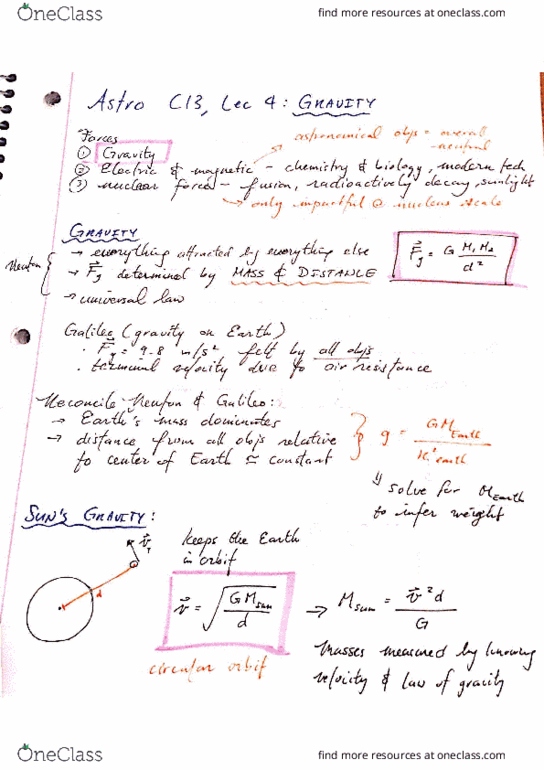 OneClass
find more resources at oneclass.com
Astro C13, Lec 4: GRAVITY
Forces
① Gravity
astronomical objs = overall neutral
② Electric & magnetic - chemistry & biology, modern tech
③ nuclear forces - fusion, radioactively decay, sunlight
→ only impactful @ nucleus scale
GRAVITY
Newton
→ everything attracted by everything else
→ F⃗g determined by MASS & DISTANCE
→ universal law
F⃗g = G M₁M₂ / d²
Galileo (gravity on Earth)
· F⃗g = 9.8 m/s² felt by all objs
· terminal velocity due to air resistance
Reconcile Newton & Galileo:
→ Earth's mass dominates
→ distance from all objs relative
to center of Earth ≃ constant
g = GM Earth / R² earth
⇓ solve for M Earth
to infer weight
SUN'S GRAVITY:
v⃗
d
keeps the Earth
in orbit
v⃗ = √(GM sun / d)
→ M sun = v⃗²d / G
circular orbit
Masses measured by knowing
velocity & law of gravity
OneClass
find more resources at oneclass.com